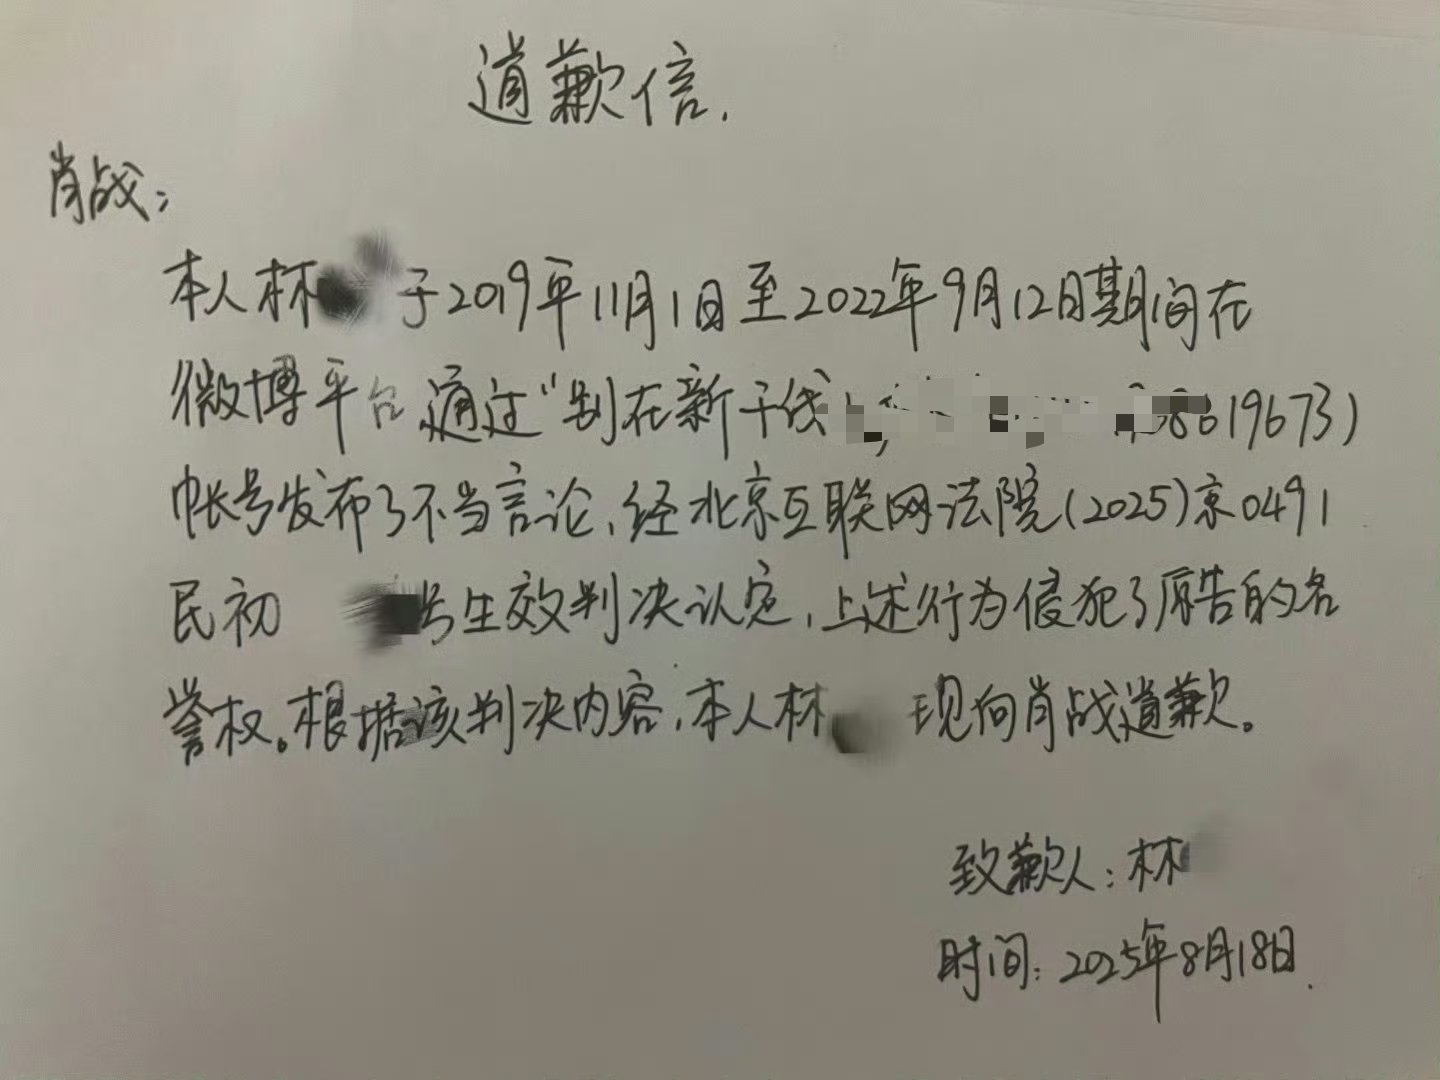 道歉信.
肖战:
本人林 于2019年11月1日至2022年9月12日期间在
微博平台通过"别在新干线 8619673)
帐号发布了不当言论,经北京互联网法院(2025)京0491
民初 号生效判决认定,上述行为侵犯了原告的名
誉权。根据该判决内容,本人林 现向肖战道歉。
致歉人:林
时间:2025年8月18日.